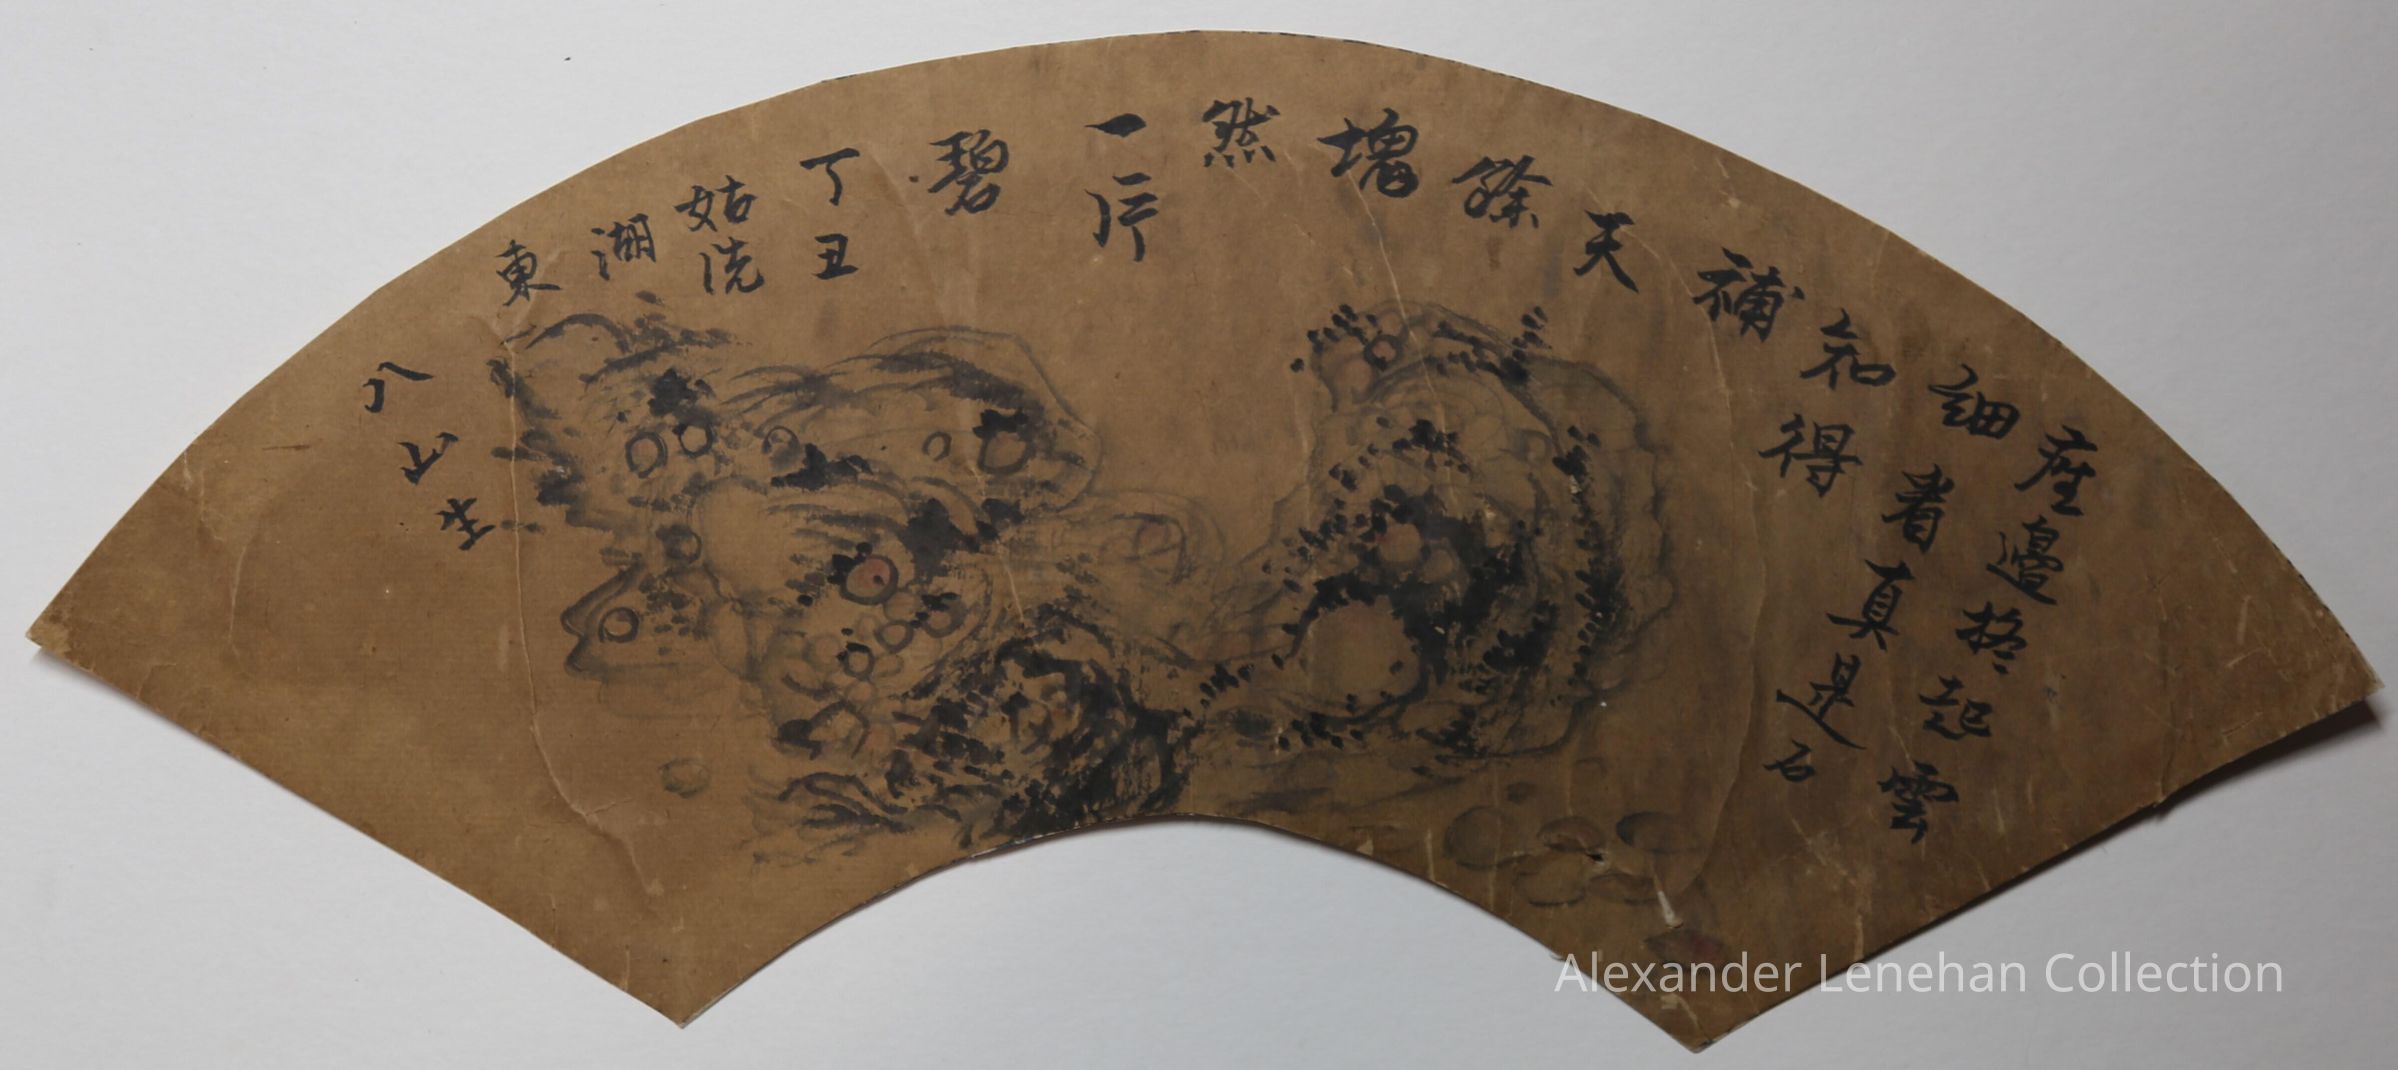 座邊起雲
細看真是石
知得
補
天
餘
塊
然
一片
碧
丁丑
姑洗
湖
東
八山生
Alexander Lenehan Collection